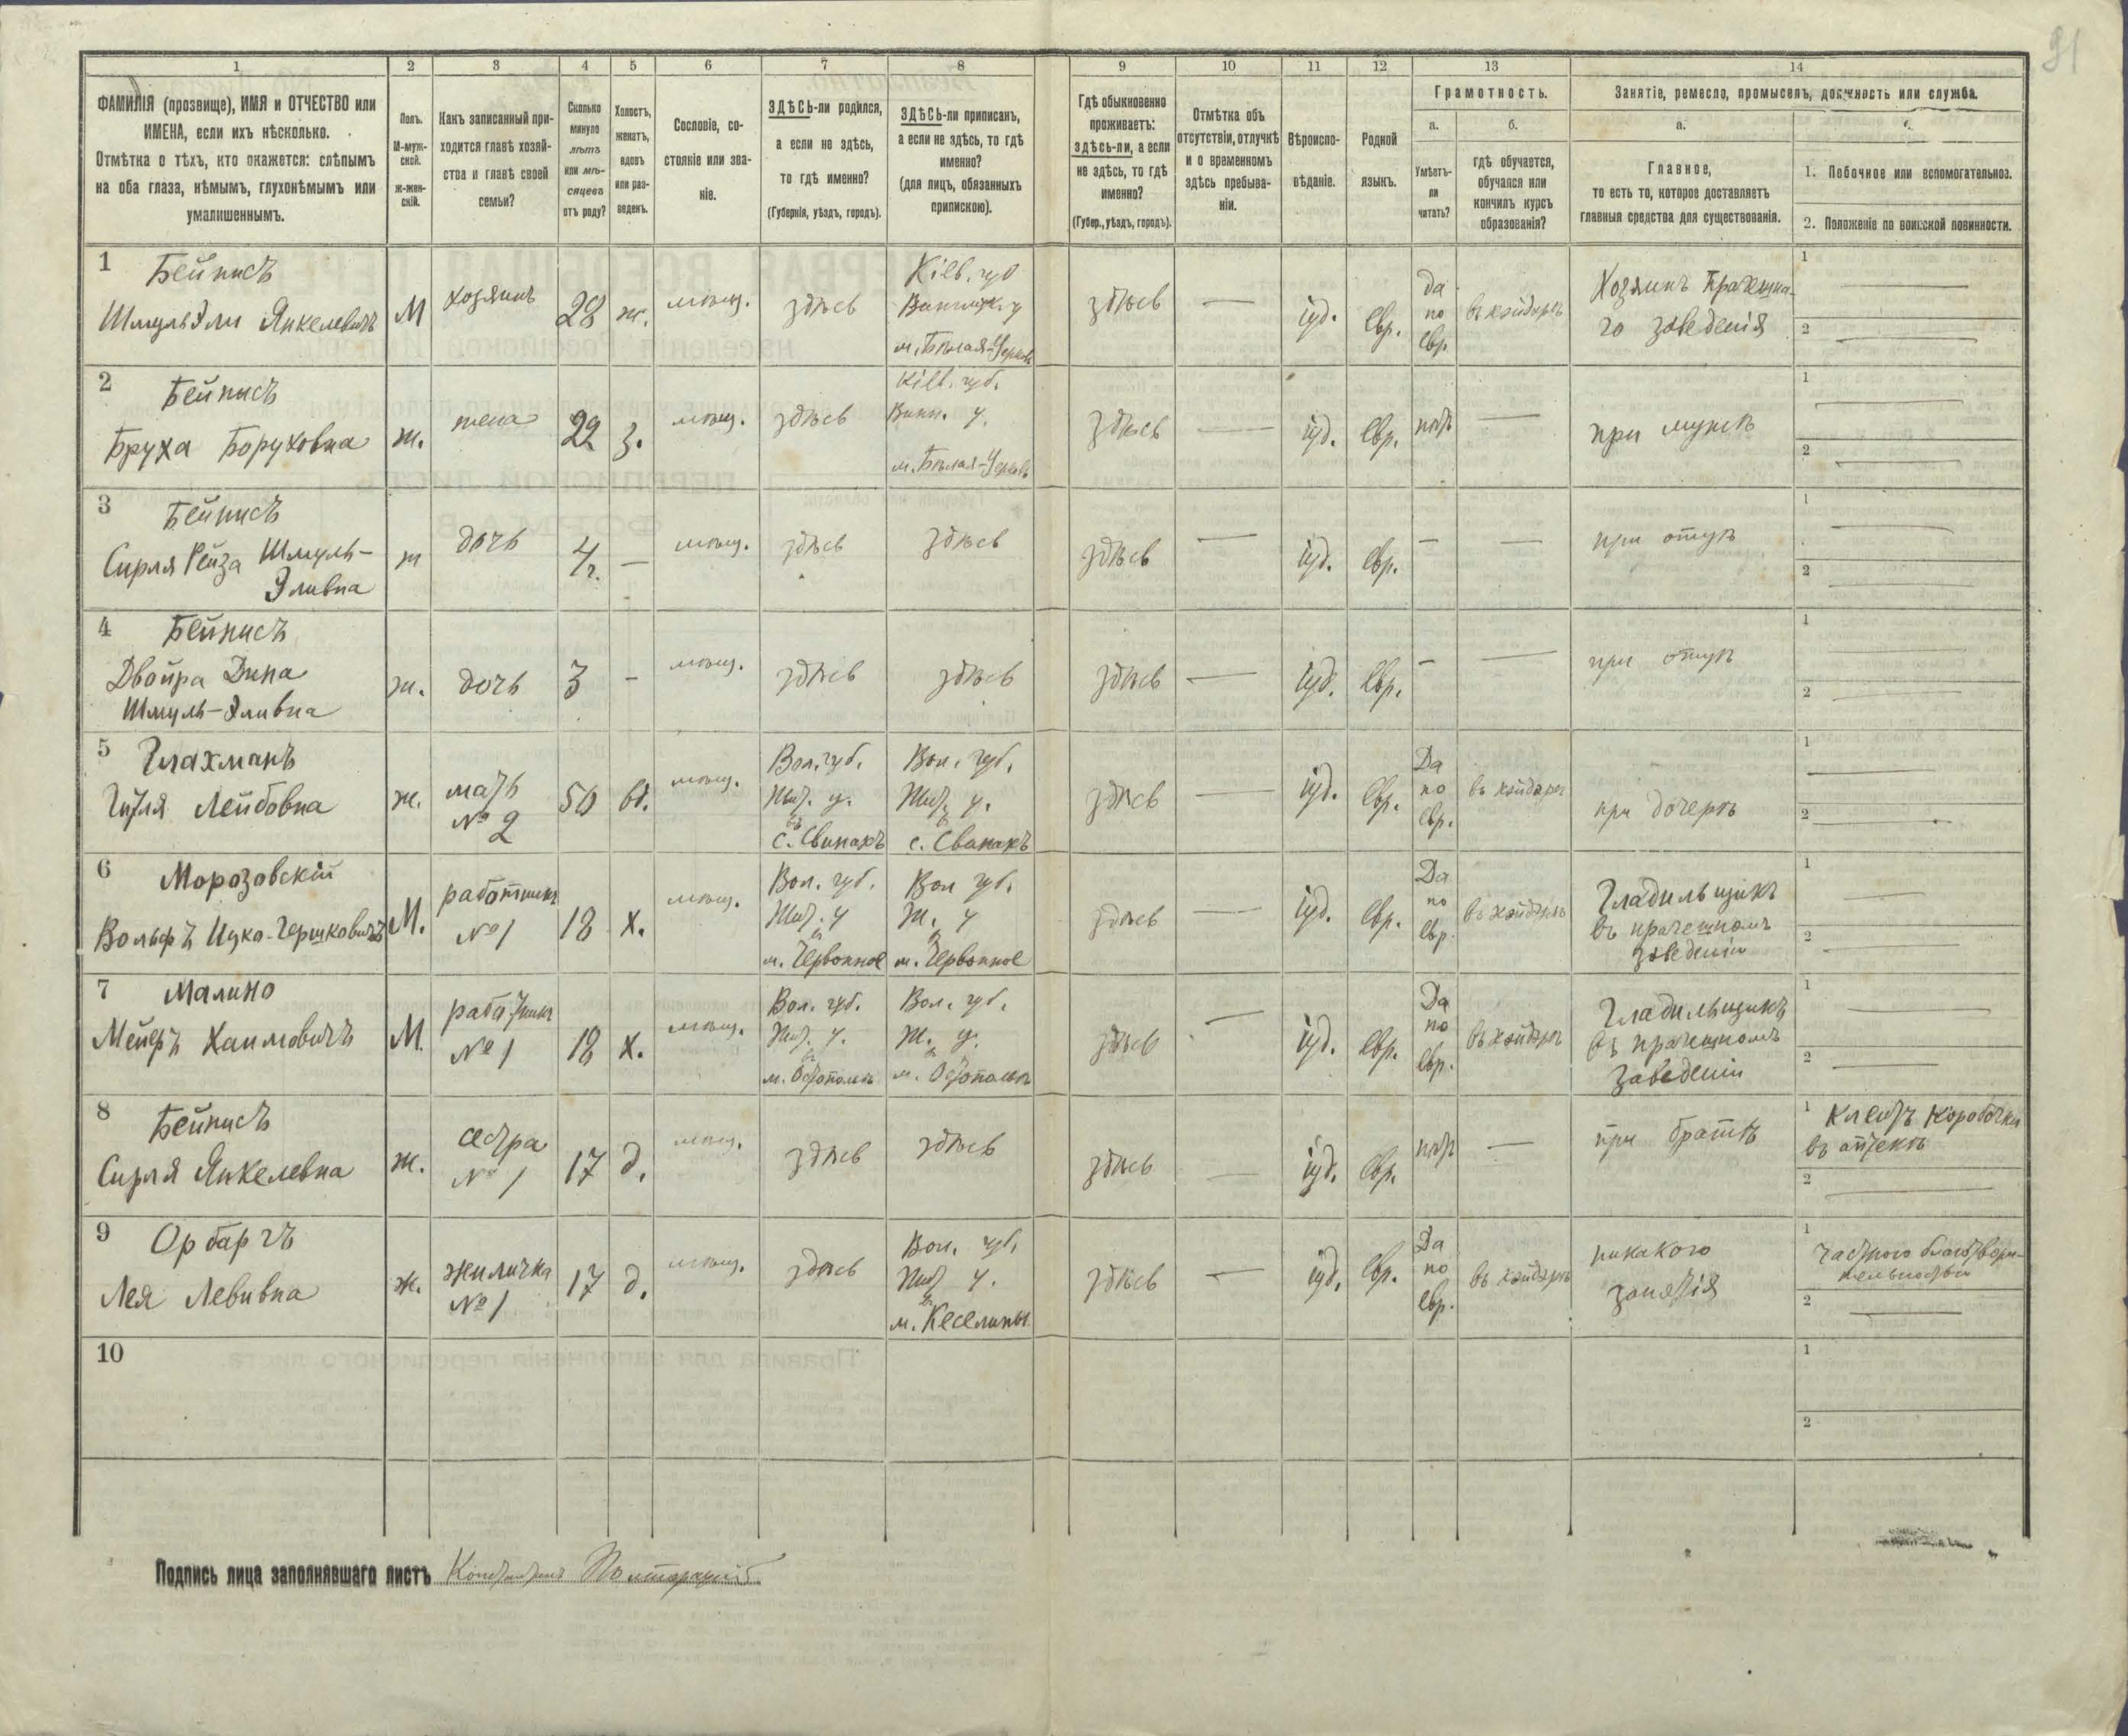 91
1 2 3 4 5 6 7 8 9 10 11 12 13 14
ФАМИЛІЯ (прозвище), ИМЯ и ОТЧЕСТВО или
ИМЕНА, если ихъ нѣсколько.
Отмѣтка о тѣхъ, кто окажется: слѣпымъ
на оба глаза, нѣмымъ, глухонѣмымъ или
умалишеннымъ.
Полъ.
М-муж-
ской.
Ж-жен-
скій.
Какъ записанный при-
ходится главѣ хозяй-
ства и главѣ своей
семьи?
Сколько
минуло
лѣтъ
или мѣ-
сяцевъ
отъ роду?
Холостъ,
женатъ,
вдовъ
или раз-
веденъ.
Сословіе, со-
стояніе или зва-
ніе.
ЗДѢСЬ-ли родился,
а если не здѣсь,
то гдѣ именно?
(Губернія, уѣздъ, городъ).
ЗДѢСЬ-ли приписанъ,
а если не здѣсь, то гдѣ
именно?
(для лицъ, обязанныхъ
припискою).
Гдѣ обыкновенно
проживаетъ:
здѣсь-ли, а если
не здѣсь, то гдѣ
именно?
(Губер., уѣздъ, городъ).
Отмѣтка объ
отсутствіи, отлучкѣ
и о временномъ
здѣсь пребыва-
ніи.
Вѣроиспо-
вѣданіе.
Родной
языкъ.
Грамотность.
а.
Умѣетъ-
ли
читать?
б.
гдѣ обучается,
обучался или
кончилъ курсъ
образованія?
Занятіе, ремесло, промыселъ, должность или служба.
а.
Главное,
то есть то, которое доставляетъ
главныя средства для существованія.
1. Побочное или вспомогательное.
2. Положеніе по воинской повинности.
1 Бейнисъ
Шмуль Эли Янкелевичъ
М
хозяинъ
28
ж.
мѣщ.
здѣсь
Кіев. губ
м. Бѣлая-Церковь
здѣсь
—
іуд.
евр.
да
по
евр.
въ хэйдерѣ
Хозяинъ Прачешна-
го заведенія
1 —
2 —
2 Бейнисъ
Бруха Боруховна
ж.
жена
22
з.
мѣщ.
здѣсь
Кіев. губ.
м. Бѣлая-Церковь
здѣсь
—
іуд.
евр.
нѣт
—
при мужѣ
1 —
2 —
3 Бейнисъ
Сирля Рейза Шмуль-
Эливна
ж
дочь
4 г.
—
мѣщ.
здѣсь
здѣсь
здѣсь
—
іуд.
евр.
—
—
при отцѣ
1 —
2 —
4 Бейнисъ
Двойра Дина
Шмуль-Эливна
ж.
дочь
3
-
мѣщ.
здѣсь
здѣсь
здѣсь
—
іуд.
евр.
—
—
при отцѣ
1 —
2 —
5 Глахманъ
Гитля Лейбовна
ж.
мать
№ 2
50
вд.
мѣщ.
Вол. губ.
Жит. у.
с. Свинахъ
Вол. губ.
Жит. у.
с. Свинахъ
здѣсь
—
іуд.
евр.
Да
по
евр.
въ хэйдерѣ
при дочерѣ
1 —
2 —
6 Морозовскій
Вольфъ Ицко-Гершковичъ
М.
работникъ
№ 1
18
х.
мѣщ.
Вол. губ.
Жит. у
м. Червонное
Вол губ.
Ж. у
м. Червонное
здѣсь
—
іуд.
евр.
Да
по
евр.
въ хэйдерѣ
Гладильщикъ
въ прачешномъ
заведеніи
1 —
2 —
7 Малино
Мейеръ Хаимовичъ
М.
работникъ
№ 1
18
х.
мѣщ.
Вол. губ.
Жит. у.
м. Остополѣ
Вол. губ.
Ж. у.
м. Остополѣ
здѣсь
—
іуд.
евр.
Да
по
евр.
въ хэйдерѣ
Гладильщикъ
въ прачешномъ
заведеніи
1 —
2 —
8 Бейнисъ
Сирля Янкелевна
ж.
сестра
№ 1
17
д.
мѣщ.
здѣсь
здѣсь
здѣсь
—
іуд.
евр.
нѣт
—
при братѣ
1 Клеитъ коробочки
въ аптекѣ
2 —
9 Орбаргъ
Лея Левивна
ж.
жиличка
№ 1
17
д.
мѣщ.
здѣсь
Вол. губ.
Жит у.
здѣсь
—
іуд.
евр.
Да
по
евр.
въ хэйдерѣ
никакого
занятія
1 частного благотвори-
тельностьи
2 —
10
1
2
Подпись лица заполнявшаго листъ